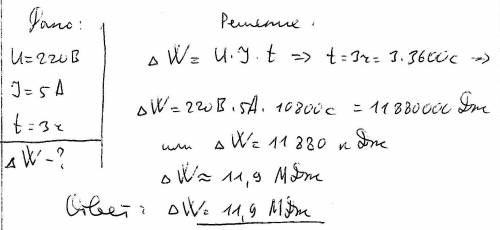 Дано:
U=220В
J=5А
t=3ч
△W-?
Решение.
△W=U·J·t => t=3ч=3·3600с =>
△W=220В·5А·10800с = 11880000 Дж
или △W=11880 кДж
△W≈11,9 МДж
Ответ: △W=11,9 МДж